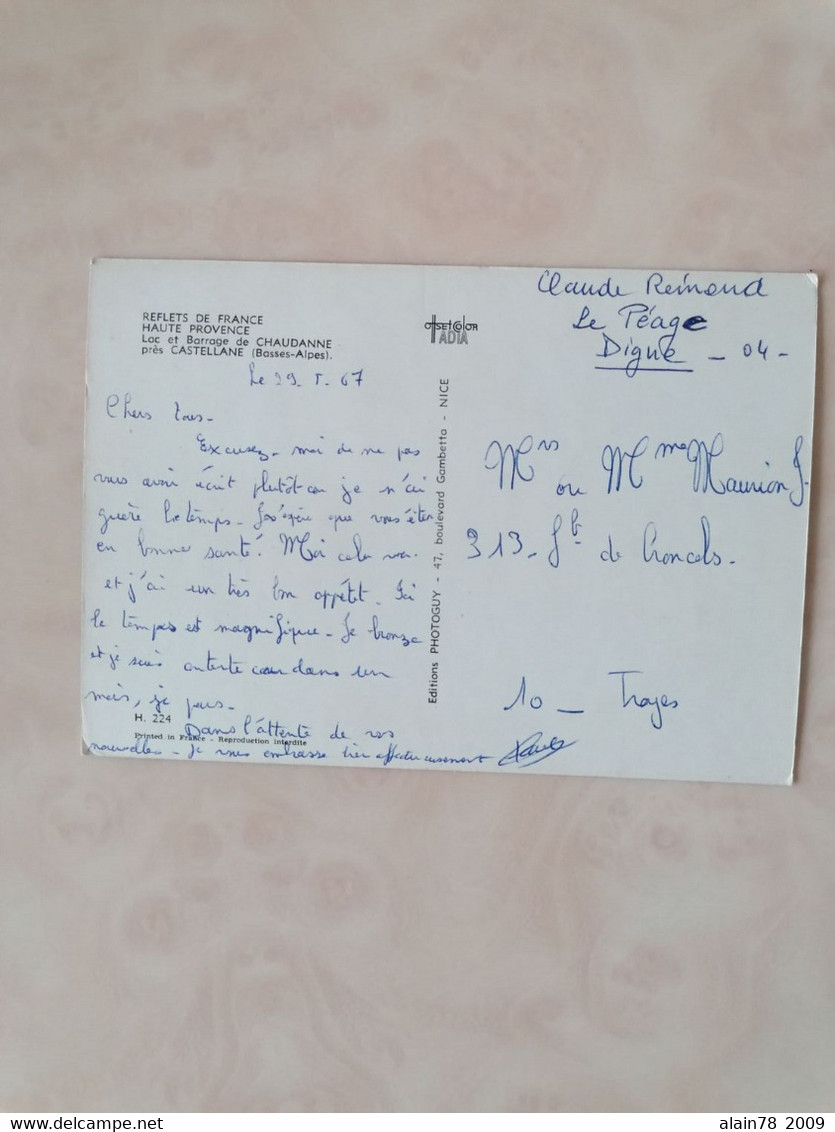 REFLETS DE FRANCE
HAUTE PROVENCE
Lac et Barrage de CHAUDANNE
près CASTELLANE (Basses-Alpes).
OFFSETCOLOR
TADIA
Claude Remond
Le Péage
Digne - 04 -
Le 29. 5. 67
Chers tous -
Excusez - moi de ne pas
vous avoir écrit plutôt car je n'ai
guère le temps - J'espère que vous êtes
en bonne santé. Moi cela va -
et j'ai un très bon appétit. Ici
le temps est magnifique - Je bronze
et je suis contente car dans un
mois, je pars -
Dans l'attente de vos
nouvelles - Je vous embrasse bien affectueusement
Claude
H. 224
Printed in France - Reproduction interdite
Editions PHOTOGUY - 47, boulevard Gambetta - NICE
Mrs ou Mme Maurion J.
313 - Fb de Croncels -
10 - Troyes
alain78 2009